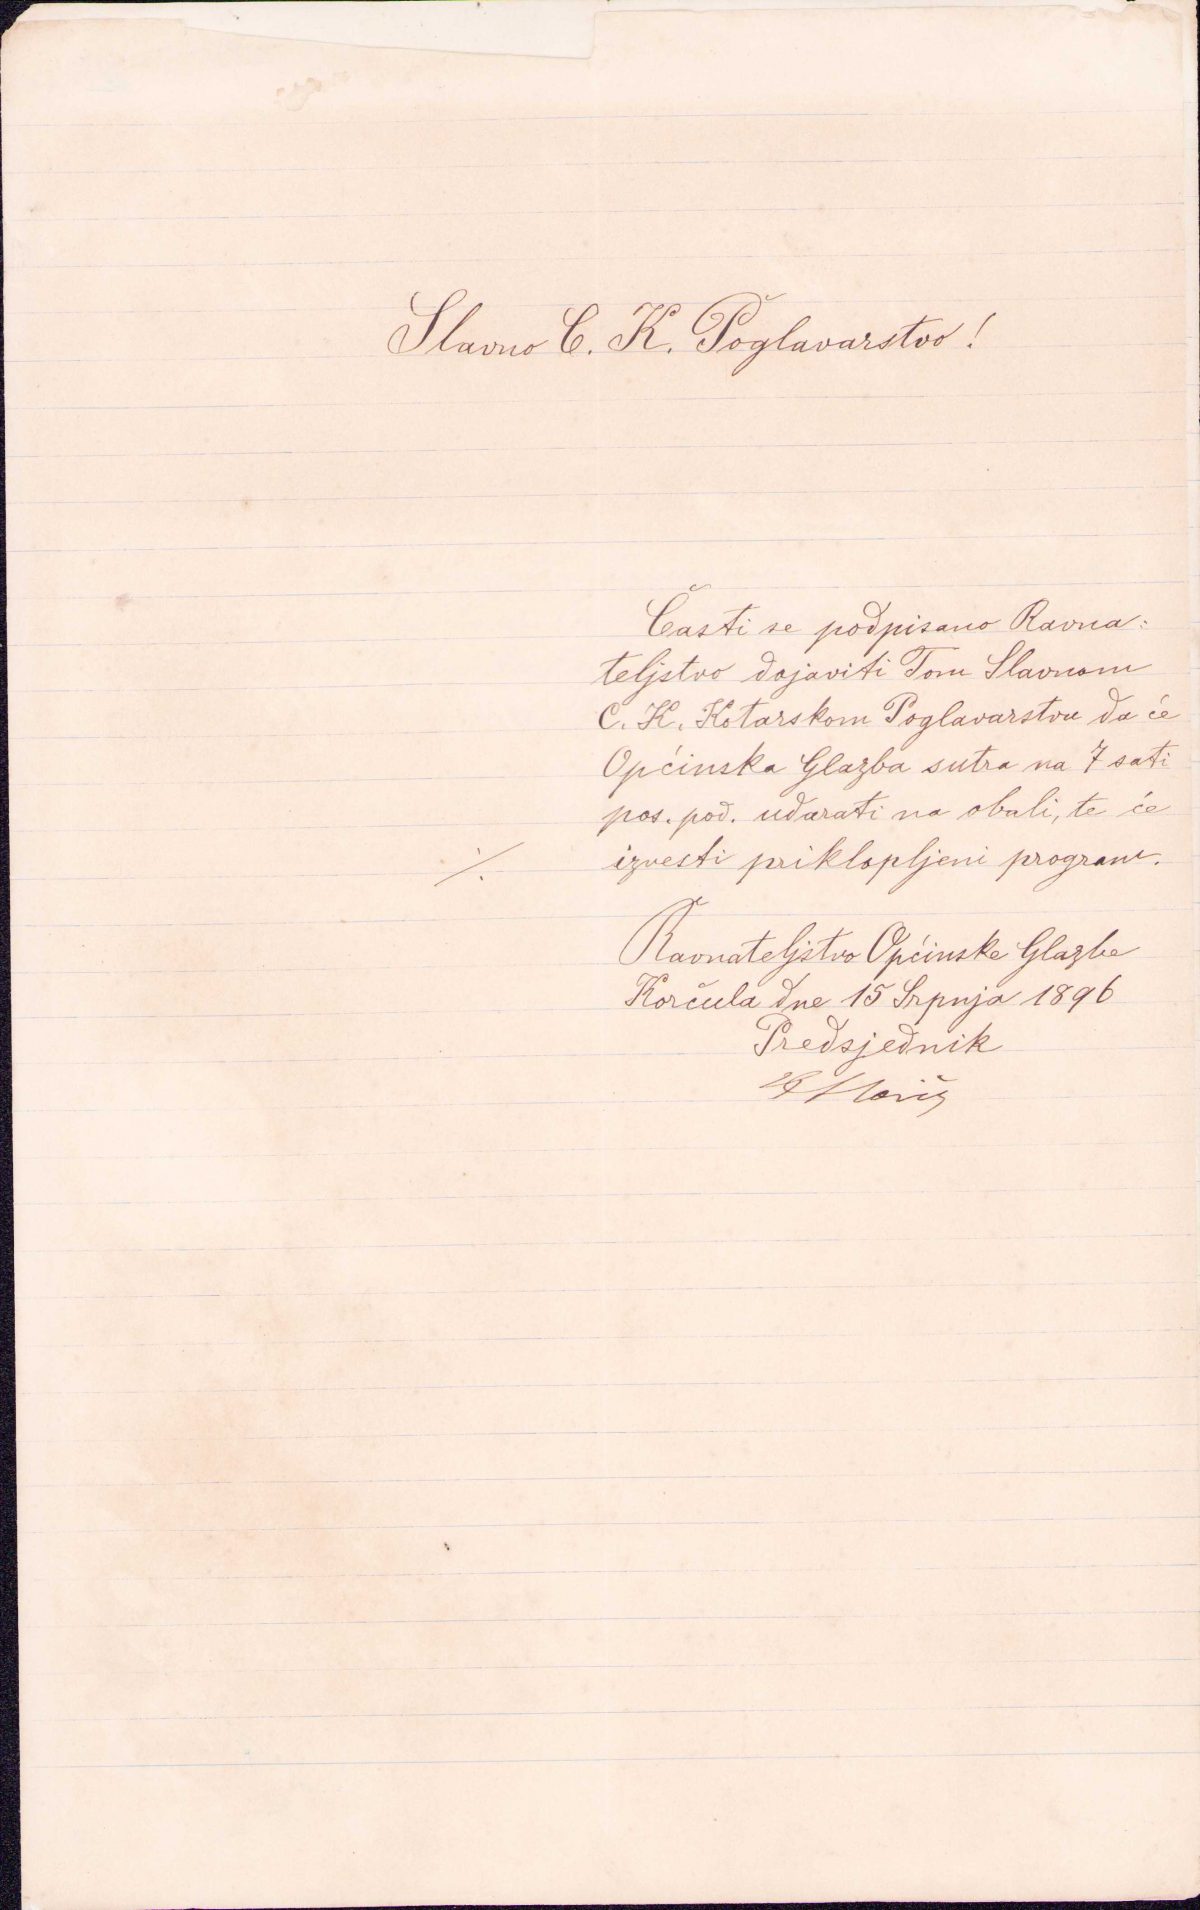 Slavno C. K. Poglavarstvo!
Časti se podpisano Ravna:
teljstvo dojaviti Tom Slavnom
C. K. Kotarskom Poglavarstvu da će
Općinska Glazba sutra na 7 sati
pos. pod. udarati na obali, te će
./. izvesti priklopljeni program.
Ravnateljstvo Općinske Glazbe
Korčula dne 15 Srpnja 1896
Predsjednik